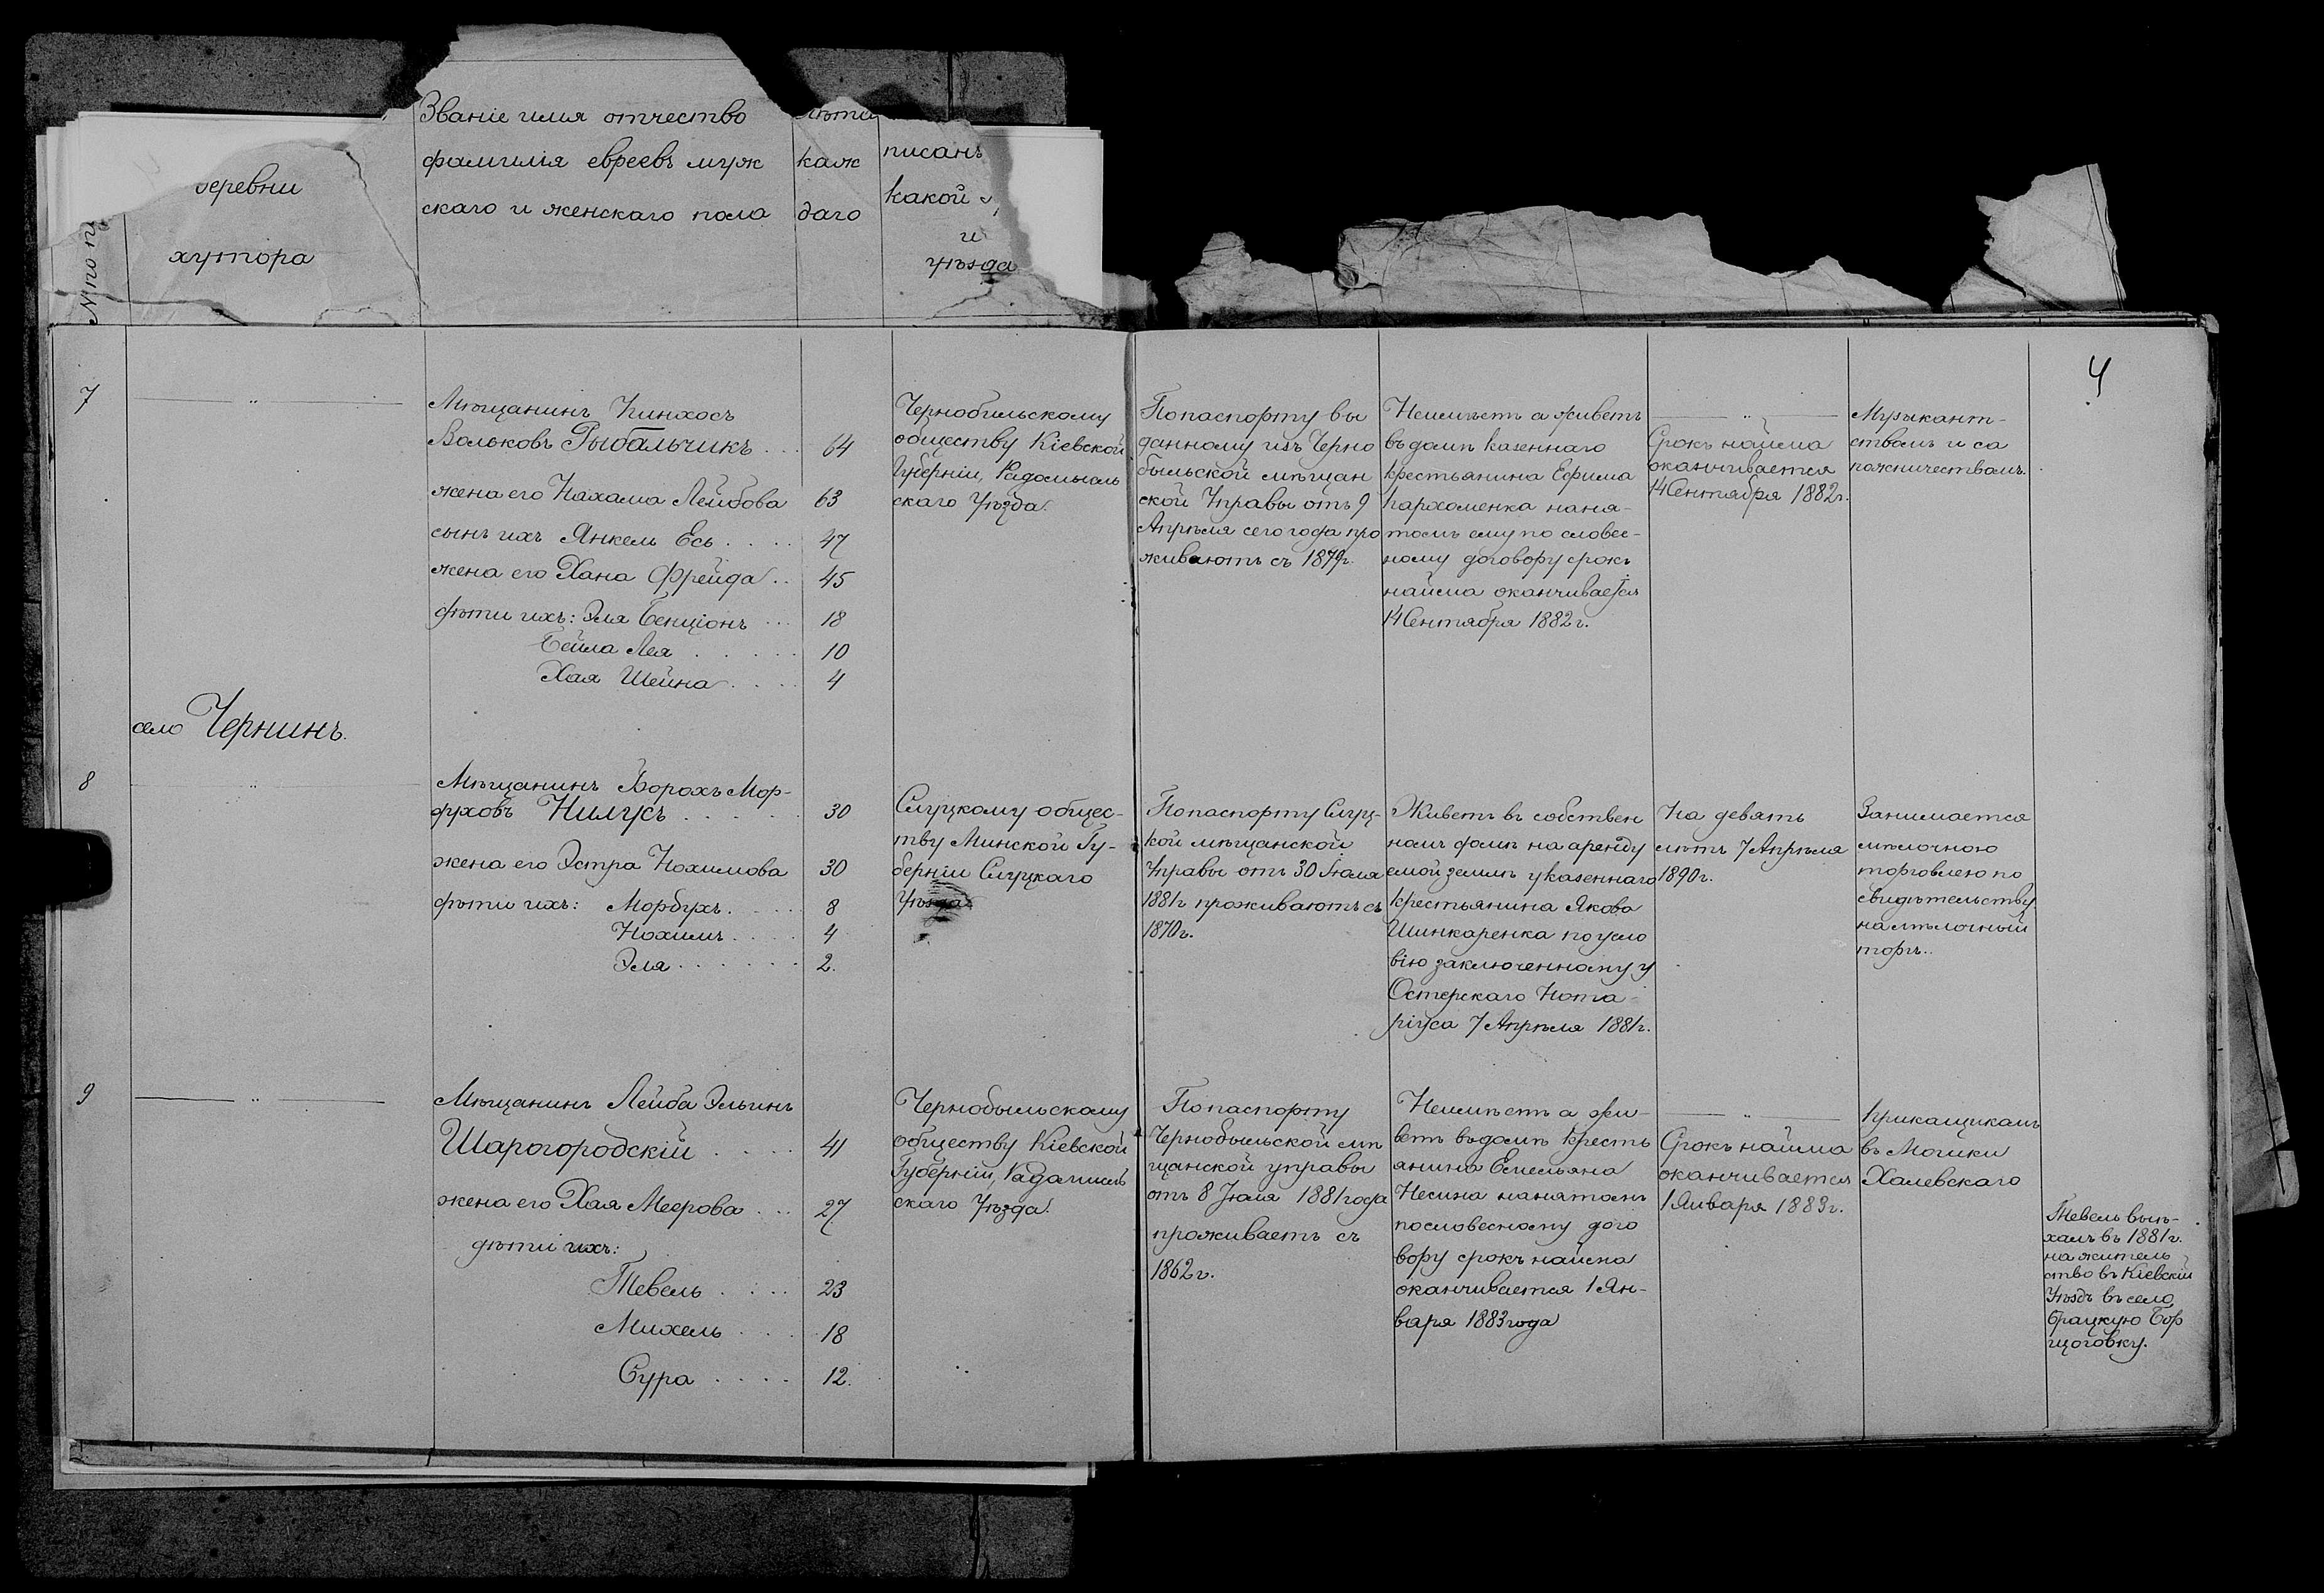 № по п
деревни
хутора
Званіе имя отчество
фамилія евреевъ муж
скаго и женскаго пола
лѣта
каж
даго
писанъ
какой
и
уѣзда
4
7
Мѣщанинъ Пинхосъ
Вольковъ Рыбальчикъ . . . 64
жена его Нахама Лейбова 63
сынъ ихъ Янкель Есь . . . . 47
жена его Хана Фрейда . . 45
дѣти ихъ: Эля Бенціонъ . . . 18
Бейла Лея . . . . . 10
Хая Шейна . . . . 4
Чернобильскому
обществу Кіевской
Губерніи, Радомысль
скаго Уѣзда.
По паспорту вы
данному изъ Черно
быльской мѣщан
ской Управы отъ 9
Апрѣля сего года про
живаютъ съ 1879г.
Неимѣетъ а живетъ
въ домѣ казеннаго
крестьянина Ефима
Пархоменка наня-
томъ ему по словес-
ному договору срокъ
найма оканчивается
14 Сентября 1882 г.
Срокъ найма
оканчивается
14 Сентября 1882г.
Музыкант-
ствомъ и са
пожничествомъ.
село Чернинъ.
8
Мѣщанинъ Борохъ Мор-
духовъ Нилусъ . . . . . . 30
жена его Эстра Нохимова 30
дѣти ихъ: Мордухъ . . . . 8
Нохимъ . . . . 4
Эля . . . . . . 2.
Слуцкому общес-
тву Минской Гу-
берніи Слуцкаго
Уѣзда
По паспорту Слуц-
кой мѣщанской
Управы отъ 30 Іюля
1881г. проживаютъ съ
1870г.
Живетъ въ собствен
номъ домѣ на аренду
емой землѣ у казеннаго
крестьянина Якова
Шинкаренка по усло
вію заключенному у
Остерскаго Нота-
ріуса 7 Апрѣля 1881г.
На девять
лѣтъ 7 Апрѣля
1890г.
Занимается
мѣлочною
торговлею по
свидѣтельству
на мѣлочный
торгъ.
9
Мѣщанинъ Лейба Эльинъ
Шарогородскій . . . . 41
жена его Хая Меерова . . . 27
дѣти ихъ:
Тевель . . . . 23
Михель . . . . 18
Сура . . . . 12.
Чернобыльскому
обществу Кіевской
Губерніи, Радомысль
скаго Уѣзда.
По паспорту
Чернобыльской мѣ
щанской управы
отъ 8 Іюля 1881 года
проживаетъ съ
1862г.
Неимѣетъ а жи-
ветъ въ домѣ кресть
янина Емельяна
Несина нанятомъ
по словесному дого
вору срокъ найма
оканчивается 1 Ян-
варя 1883 года
Срокъ найма
оканчивается
1 Января 1883г.
Прикащикамъ
въ Мошки
Халевскаго
Тевель выѣ-
халъ въ 1881г.
на житель
ство въ Кіевскій
Уѣздъ въ село
Брацкую Бор
щоговку.